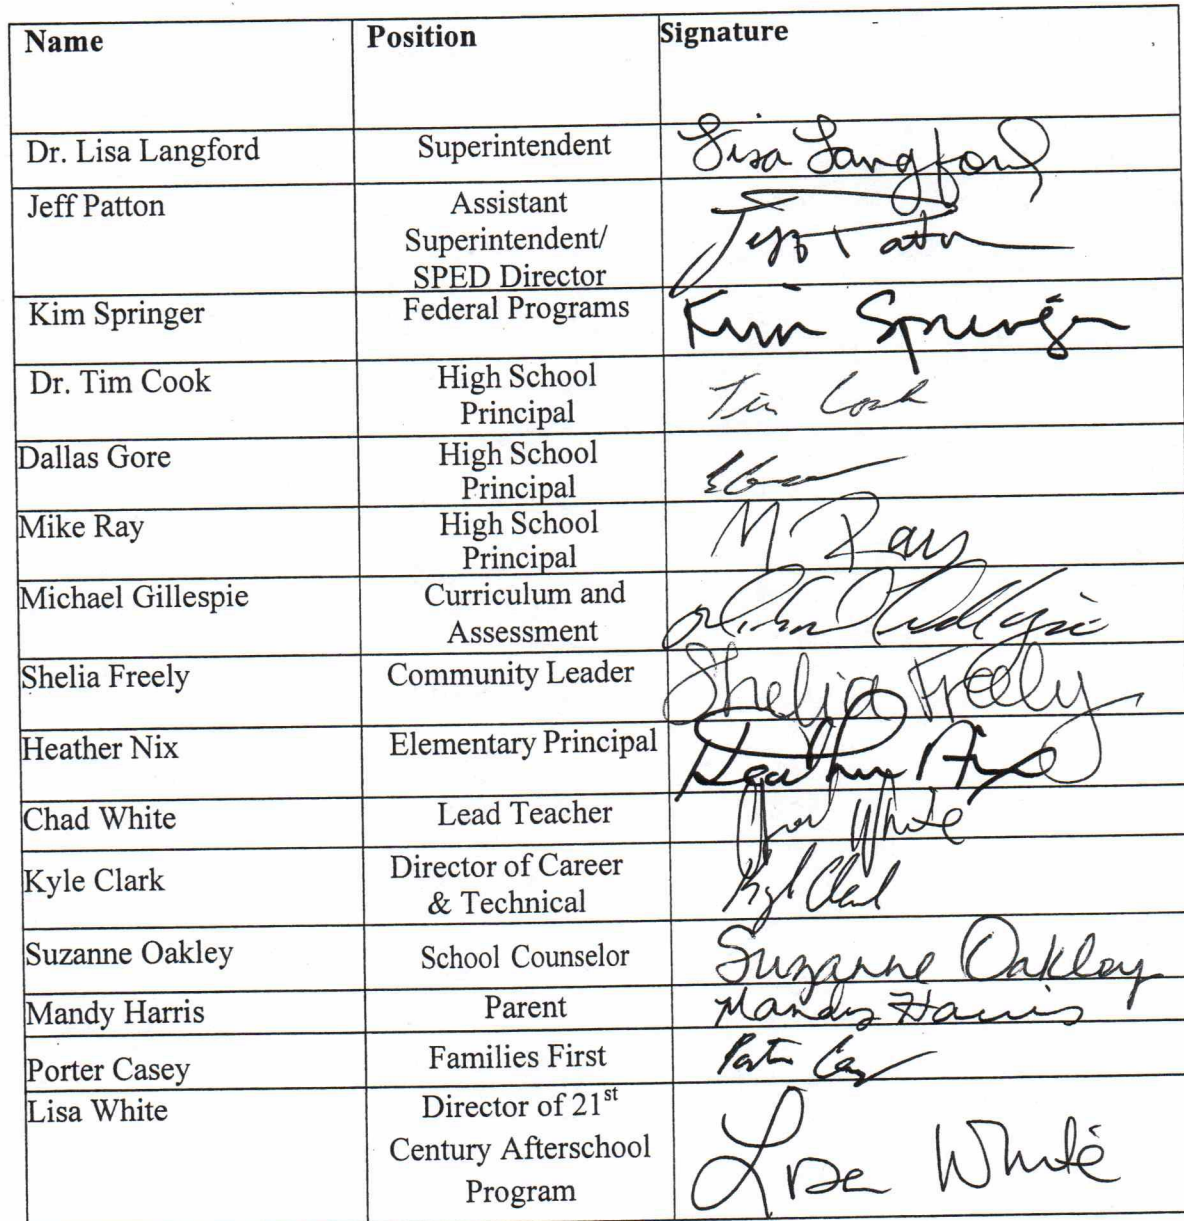 Name Position Signature
Dr. Lisa Langford Superintendent Lisa Langford
Jeff Patton Assistant Superintendent/ SPED Director Jeff Patton
Kim Springer Federal Programs Kim Springer
Dr. Tim Cook High School Principal Tim Cook
Dallas Gore High School Principal
Mike Ray High School Principal M Ray
Michael Gillespie Curriculum and Assessment Michael Gillespie
Shelia Freely Community Leader Shelia Freely
Heather Nix Elementary Principal Heather Nix
Chad White Lead Teacher Chad White
Kyle Clark Director of Career & Technical Kyle Clark
Suzanne Oakley School Counselor Suzanne Oakley
Mandy Harris Parent Mandy Harris
Porter Casey Families First Porter Casey
Lisa White Director of 21st Century Afterschool Program Lisa White